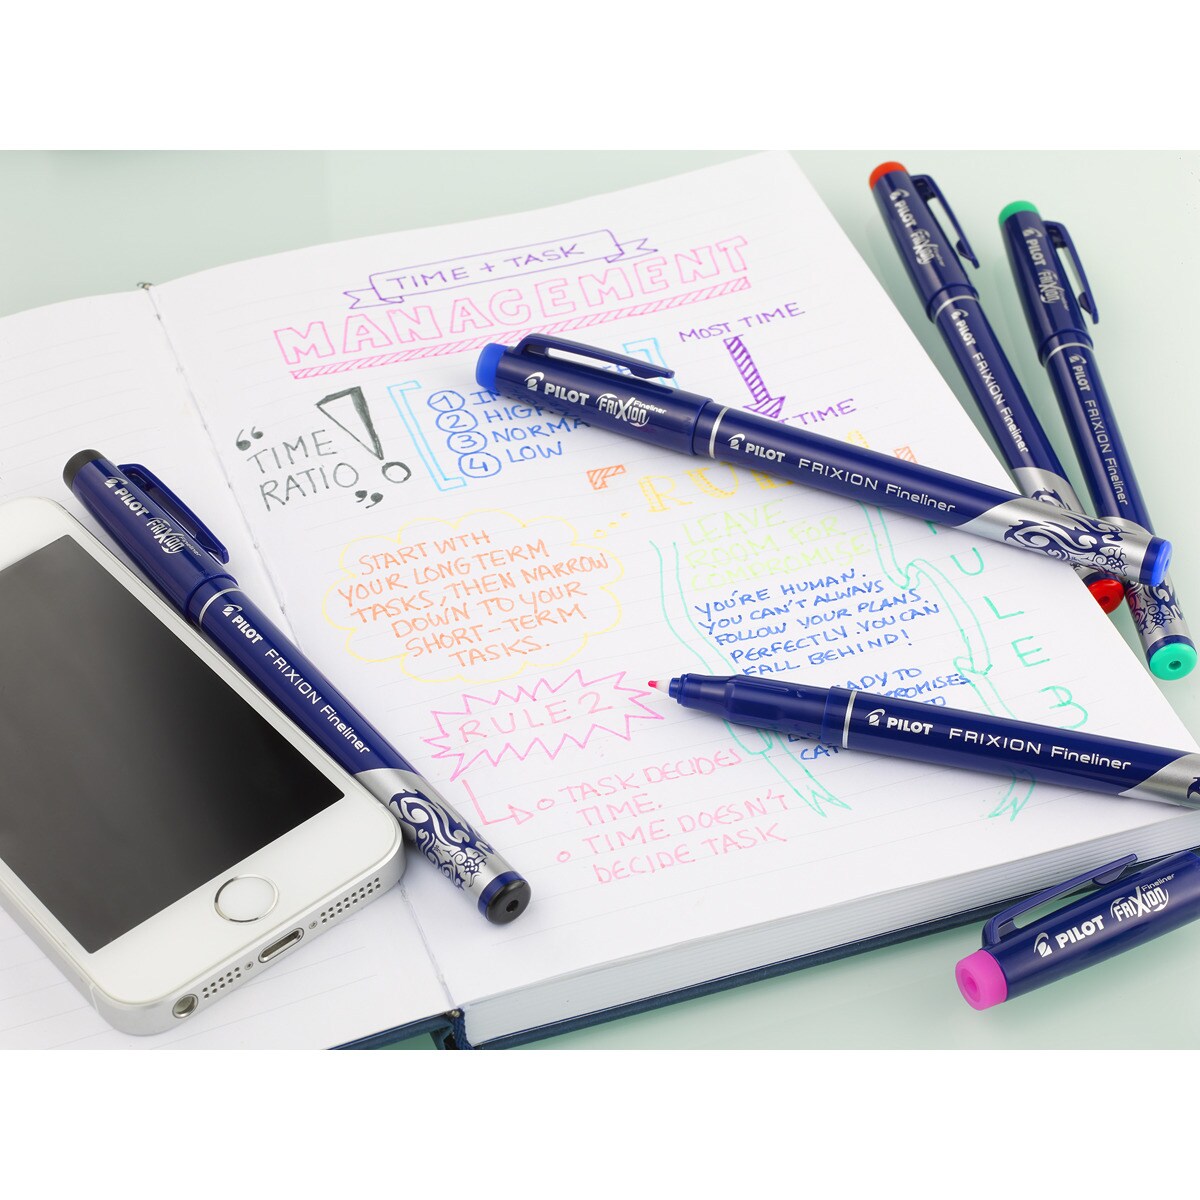 TIME + TASK
MANAGEMENT
MOST TIME
TIME
"TIME
RATIO"
!
1
2 HIGH
3 NORMA
4 LOW
START WTH
YOUR LONG TERM
TASKS, THEN NARROW
DOWN TO YOUR
SHORT-TERM
TASKS.
LEAVE
ROOM FOR
COMPROMISE
YOU'RE HUMAN.
YOU CAN'T ALWAYS
FOLLOW YOUR PLANS.
PERFECTLY. YOU CAN
FALL BEHIND!
ADY TO
OMPROMISES
CAT
ULE 3
RULE 2
TASK DECIDES
TIME.
TIME DOESN'T
DECIDE TASK
PILOT FRIXION Fineliner
PILOT FRIXION Fineliner
PILOT FRIXION Fineliner
PILOT FRIXION Fineliner
PILOT FRIXION
PILOT FRIXION Fineliner
PILOT FRIXION Fineliner
PILOT FRIXION Fineliner
PILOT FRIXION Fineliner
PILOT FRIXION Fineliner